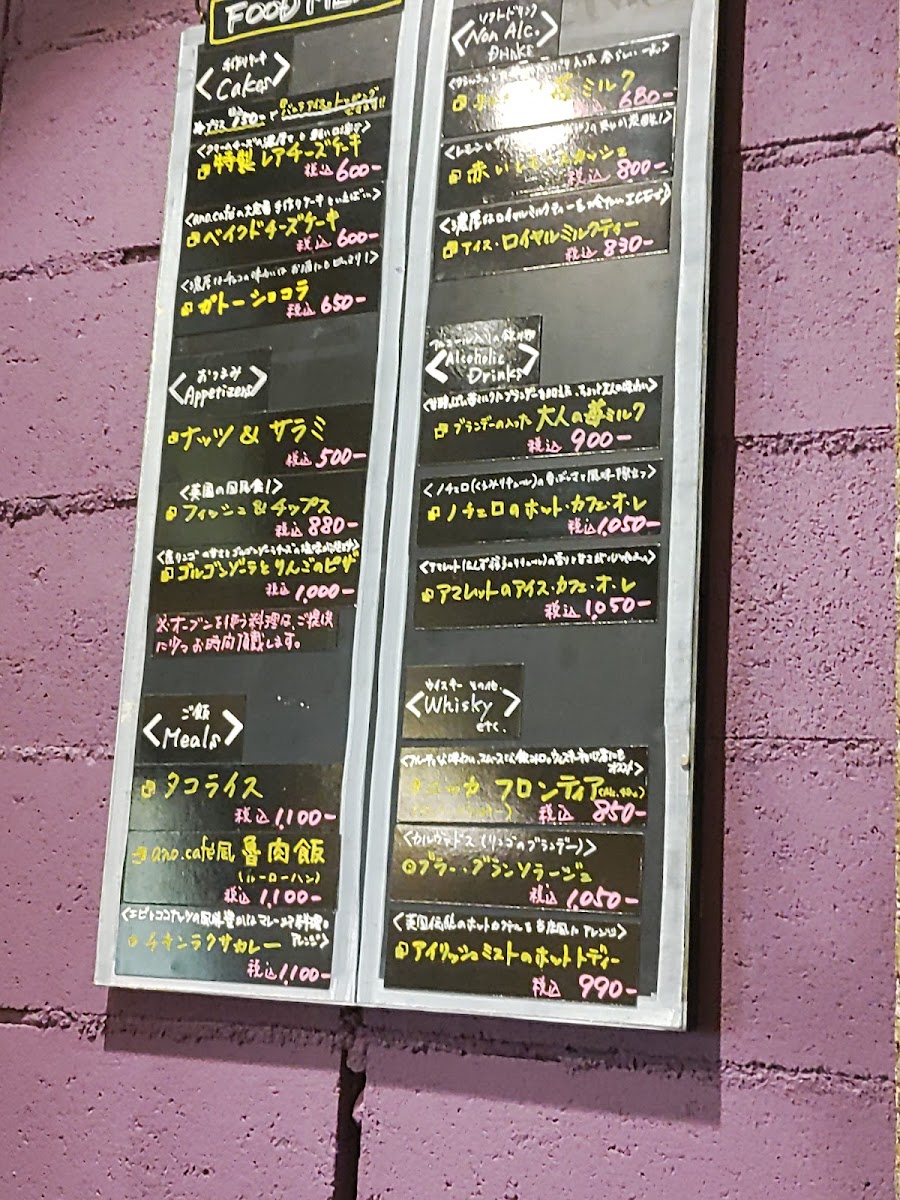 FOOD
手作りケーキ
Cakes
プラス 150-で バニラアイスをトッピングできます!!
<クリームチーズの濃厚さと軽い口溶け>
特製レアチーズケーキ
税込 600-
<ano.caféの大定番 手作りケーキといえばコレ>
ベイクドチーズケーキ
税込 600-
<濃厚なチョコの味わいは お酒にもぴったり!>
ガトーショコラ
税込 650-
おつまみ
Appetizers
ナッツ & サラミ
税込 500-
<英国の国民食!>
フィッシュ&チップス
税込 880-
ゴルゴンゾーラとりんごのピザ
税込 1,000-
※オーブンを使う料理は、ご提供
に少々お時間頂戴します。
ご飯
Meals
タコライス
税込 1,100-
ano.café風 魯肉飯
(ルーローハン)
税込 1,100-
チキンラクサカレー アレンジ>
税込 1,100-
ソフトドリンク
Non Alc.
Drinks
ミルク
680-
赤い
税込 800-
<濃厚なロイヤルミルクティーを
アイス・ロイヤルミルクティー
税込 830-
アルコール入りの飲み物
Alcoholic
Drinks
ブランデーの入った 大人の苺ミルク
税込 900-
ノチェロのホット・カフェ・オ・レ
税込 1,050-
アマレットのアイス・カフェ・オ・レ
税込 1,050-
ウイスキー その他.
Whisky
etc.
フロンティア
税込 850-
<カルヴァドス (リンゴのブランデー)>
ブラー・グランソラージュ
税込 1,050-
<英国伝統のホットカクテルを当店風にアレンジ>
アイリッシュミストのホットトディー
税込 990-